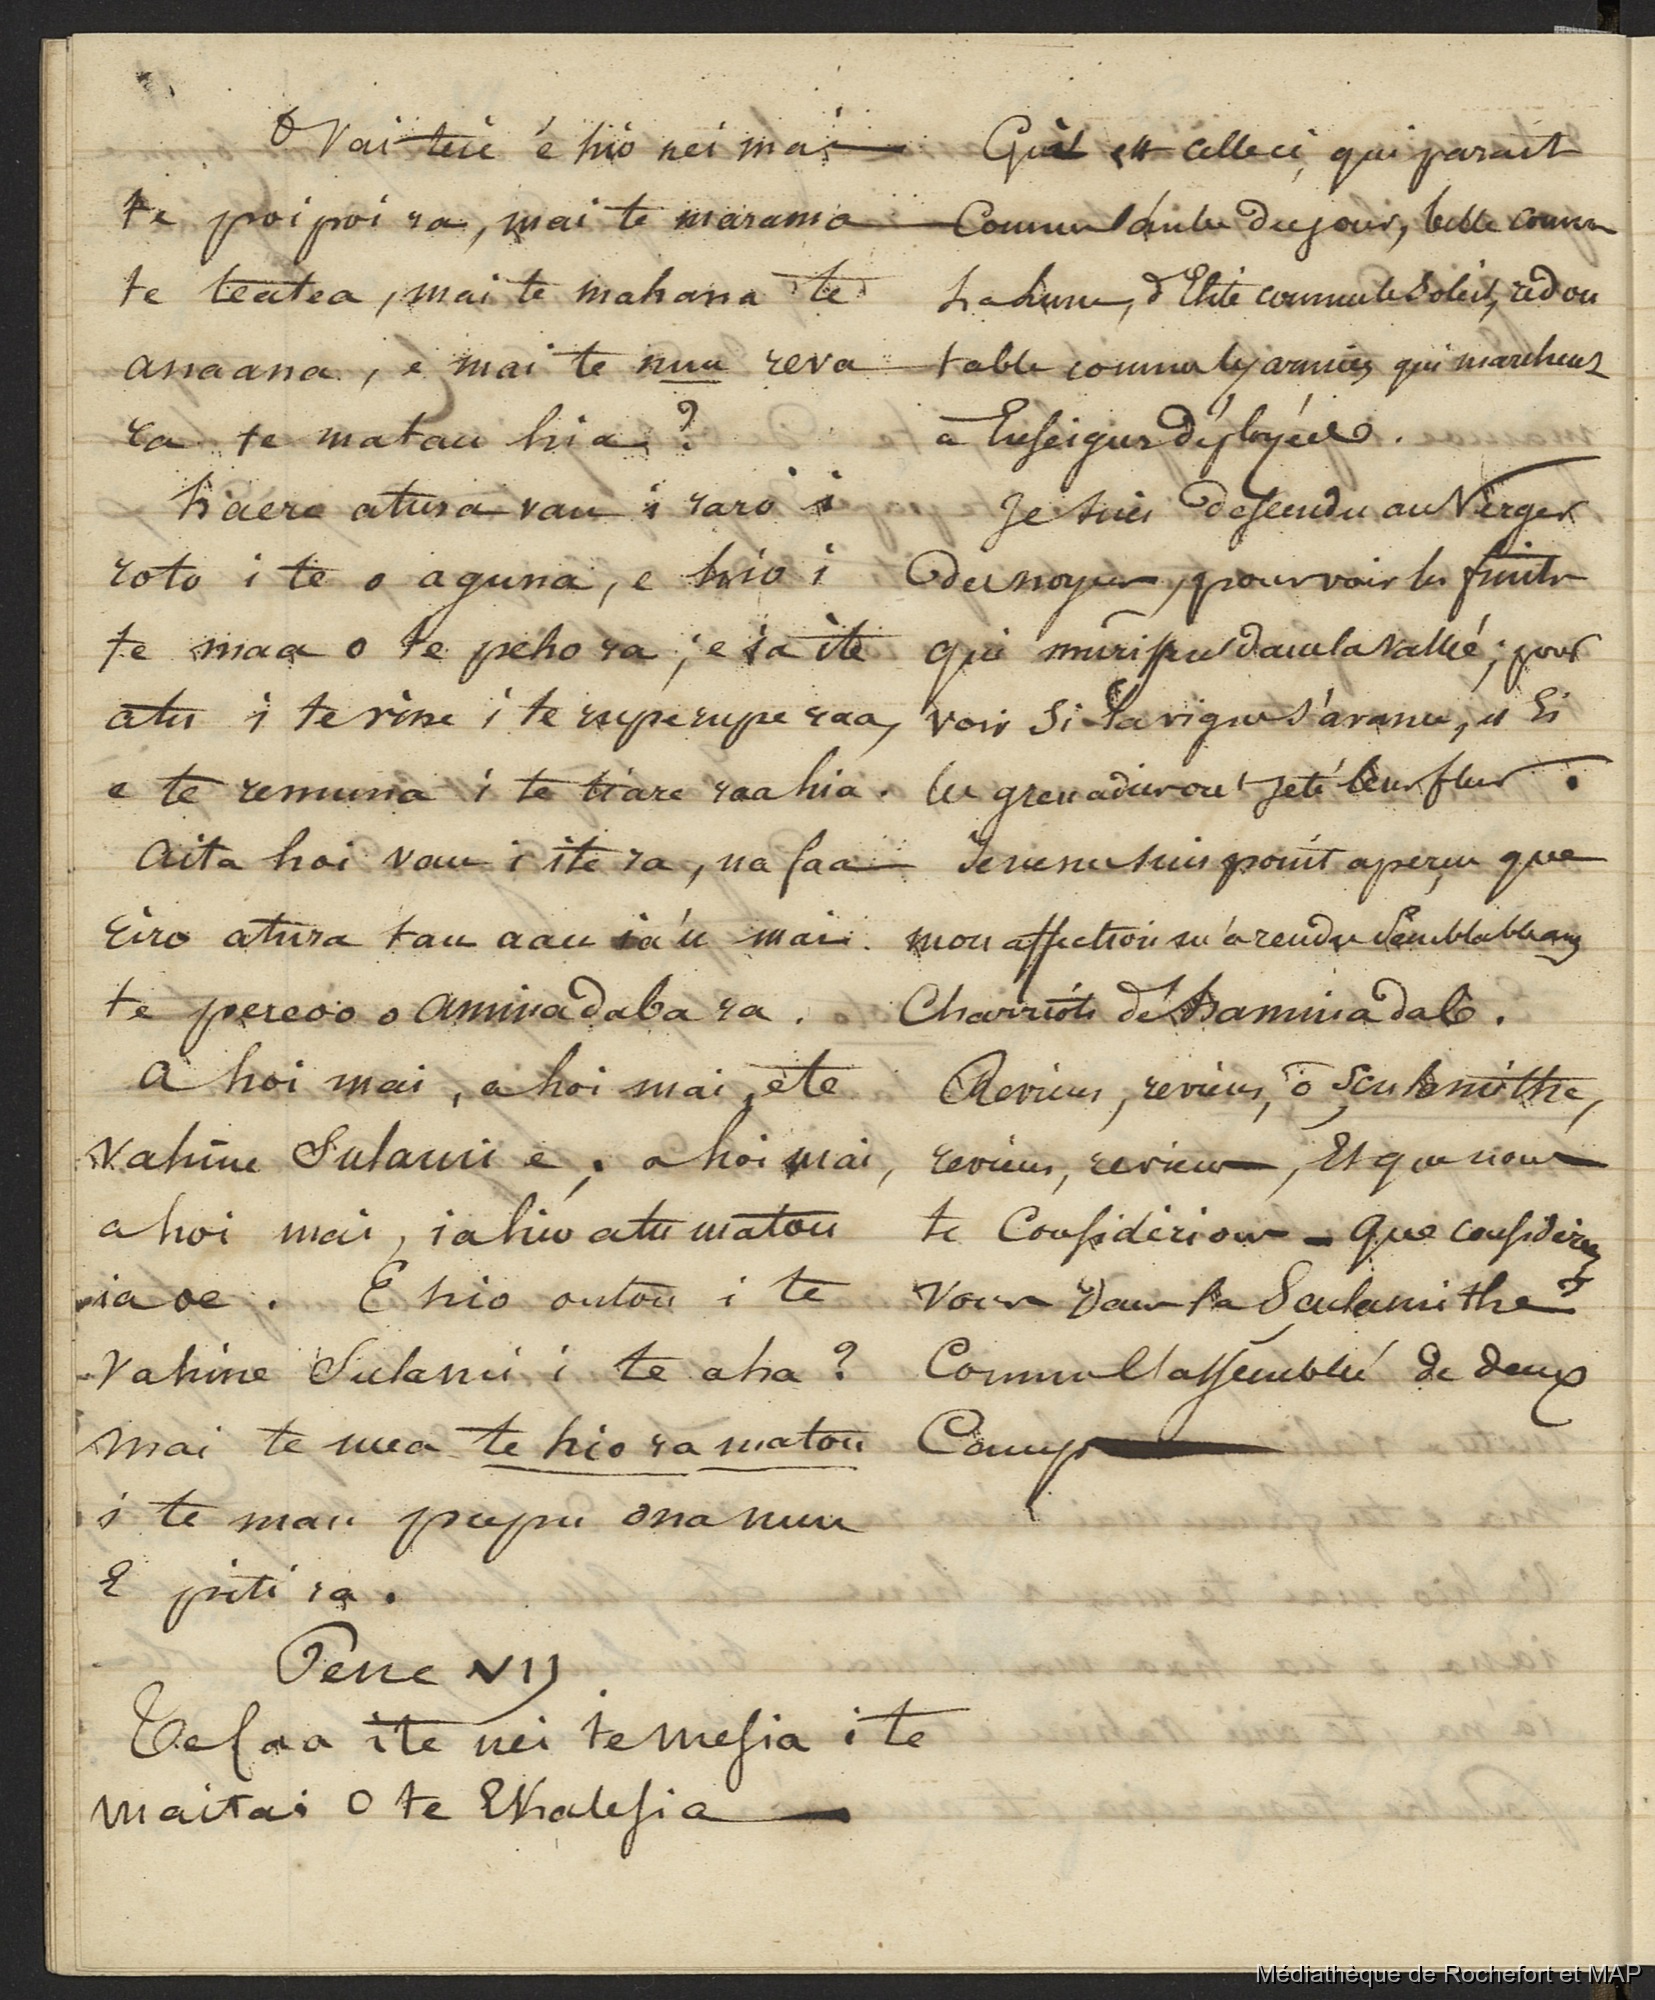 O Vai teie é hio nei mai
te poipoi ra, mai te marama
te teatea, mai te mahana te
anaana, e mai te nuu reva
ra te matau hia ?
haere atura vau i raro i
roto i te o aguna, e hio i
te maa o te peho ra ; e ia ite
atu i te vine i te ruperupe raa,
e te remuna i te tiare raa hia.
Aita hoi vau i ite ra, na faa
riro atura tau aau ia'u mai
te pereoo o Aminadaba ra.
A hoi mai, a hoi mai, e te
Vahine Sulami e, a hoi mai,
a hoi mai, ia hio atu matou
ia oe. E hio outou i te
Vahine Sulami i te aha ?
mai te mea te hio ra matou
i te mau pupu ona nuu
E piti ra.
Pene VII
Te faa ite nei te Mesia i te
maitai O te Ekalesia
Qui est celle ci, qui parait
Comme l'aube du jour, belle comme
La lune, d'Elite comme le Soleil, redou
table comme les armées qui marchent
a Enseignes Déployées.
Je suis descendu au Verger
des noyers, pour voir les fruits
qui murissent dans la vallée ; pour
voir Si la vigne s'avance, et Si
les grenadiers ont jeté leur fleur.
Je ne me suis point aperçu que
mon affection m'a rendu Semblable aux
Charriots de Haminadab.
Reviens, reviens, ô Sculamithe,
reviens, reviens, Et que nous
te Considérions - Que considérez
Vous Dans la Sculamithe ?
Comme l'assemblée de deux
Camps
Médiathèque de Rochefort et MAP